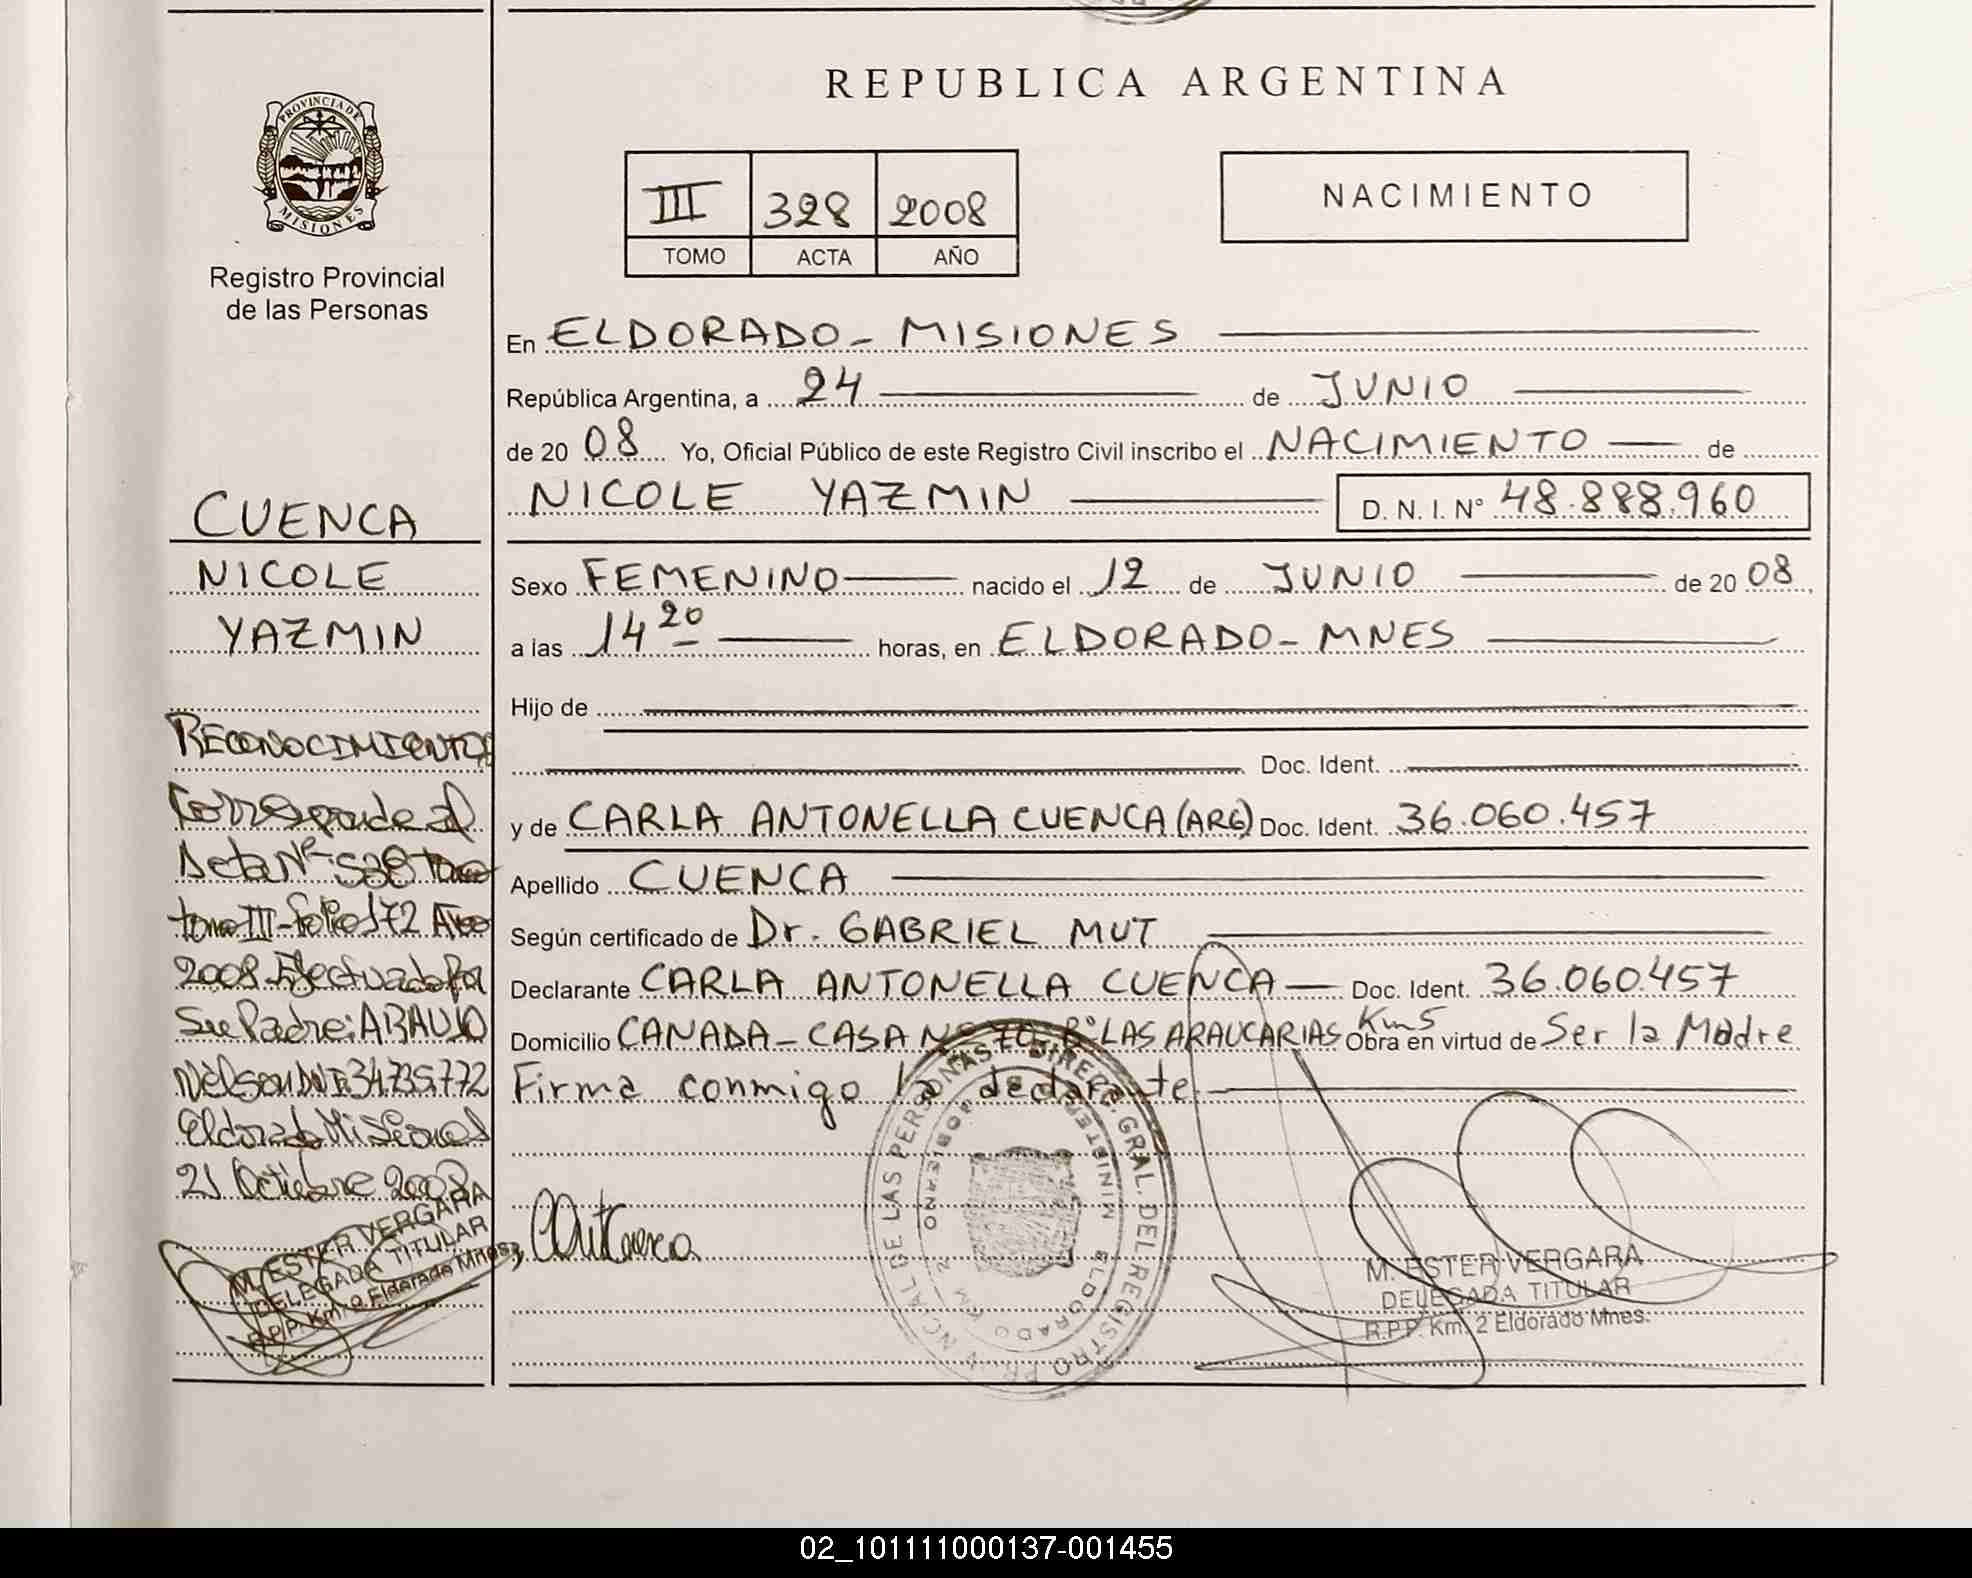 REPUBLICA ARGENTINA
PROVINCIA DE
MISIONES
Registro Provincial
de las Personas
III 328 2008
TOMO ACTA AÑO
NACIMIENTO
En ELDORADO - MISIONES
República Argentina, a 24 de JUNIO
de 20 08 Yo, Oficial Público de este Registro Civil inscribo el NACIMIENTO de
NICOLE YAZMIN D. N. I. N° 48.888.960
Sexo FEMENINO nacido el 12 de JUNIO de 20 08
a las 14 20 horas, en ELDORADO - MNES
Hijo de
Doc. Ident.
y de CARLA ANTONELLA CUENCA (ARG) Doc. Ident. 36.060.457
Apellido CUENCA
Según certificado de Dr. GABRIEL MUT
Declarante CARLA ANTONELLA CUENCA Doc. Ident. 36.060.457
Domicilio CANADA - CASA Nº 70 - Bº LAS ARAUCARIAS Km5 Obra en virtud de Ser la Madre
Firma conmigo la declarante
CUENCA
NICOLE
YAZMIN
RECONOCIMIENTO
Corresponde al
Acta Nº 538
tomo III - folio 172 Año
2008 Efectuado Por
Su Padre: ARAUJO
Nelson DNI: 34.735.772
Eldorado Misiones
21 Octubre 2008
M. ESTER VERGARA
DELEGADA TITULAR
R.P.P. Km. 2 Eldorado Mnes.
DIREC. GRAL. DEL REGISTRO PROVINCIAL DE LAS PERSONAS
MINISTERIO GOBIERNO
ELDORADO KM 2
M. ESTER VERGARA
DELEGADA TITULAR
R.P.P. Km. 2 Eldorado Mnes.
02_101111000137-001455